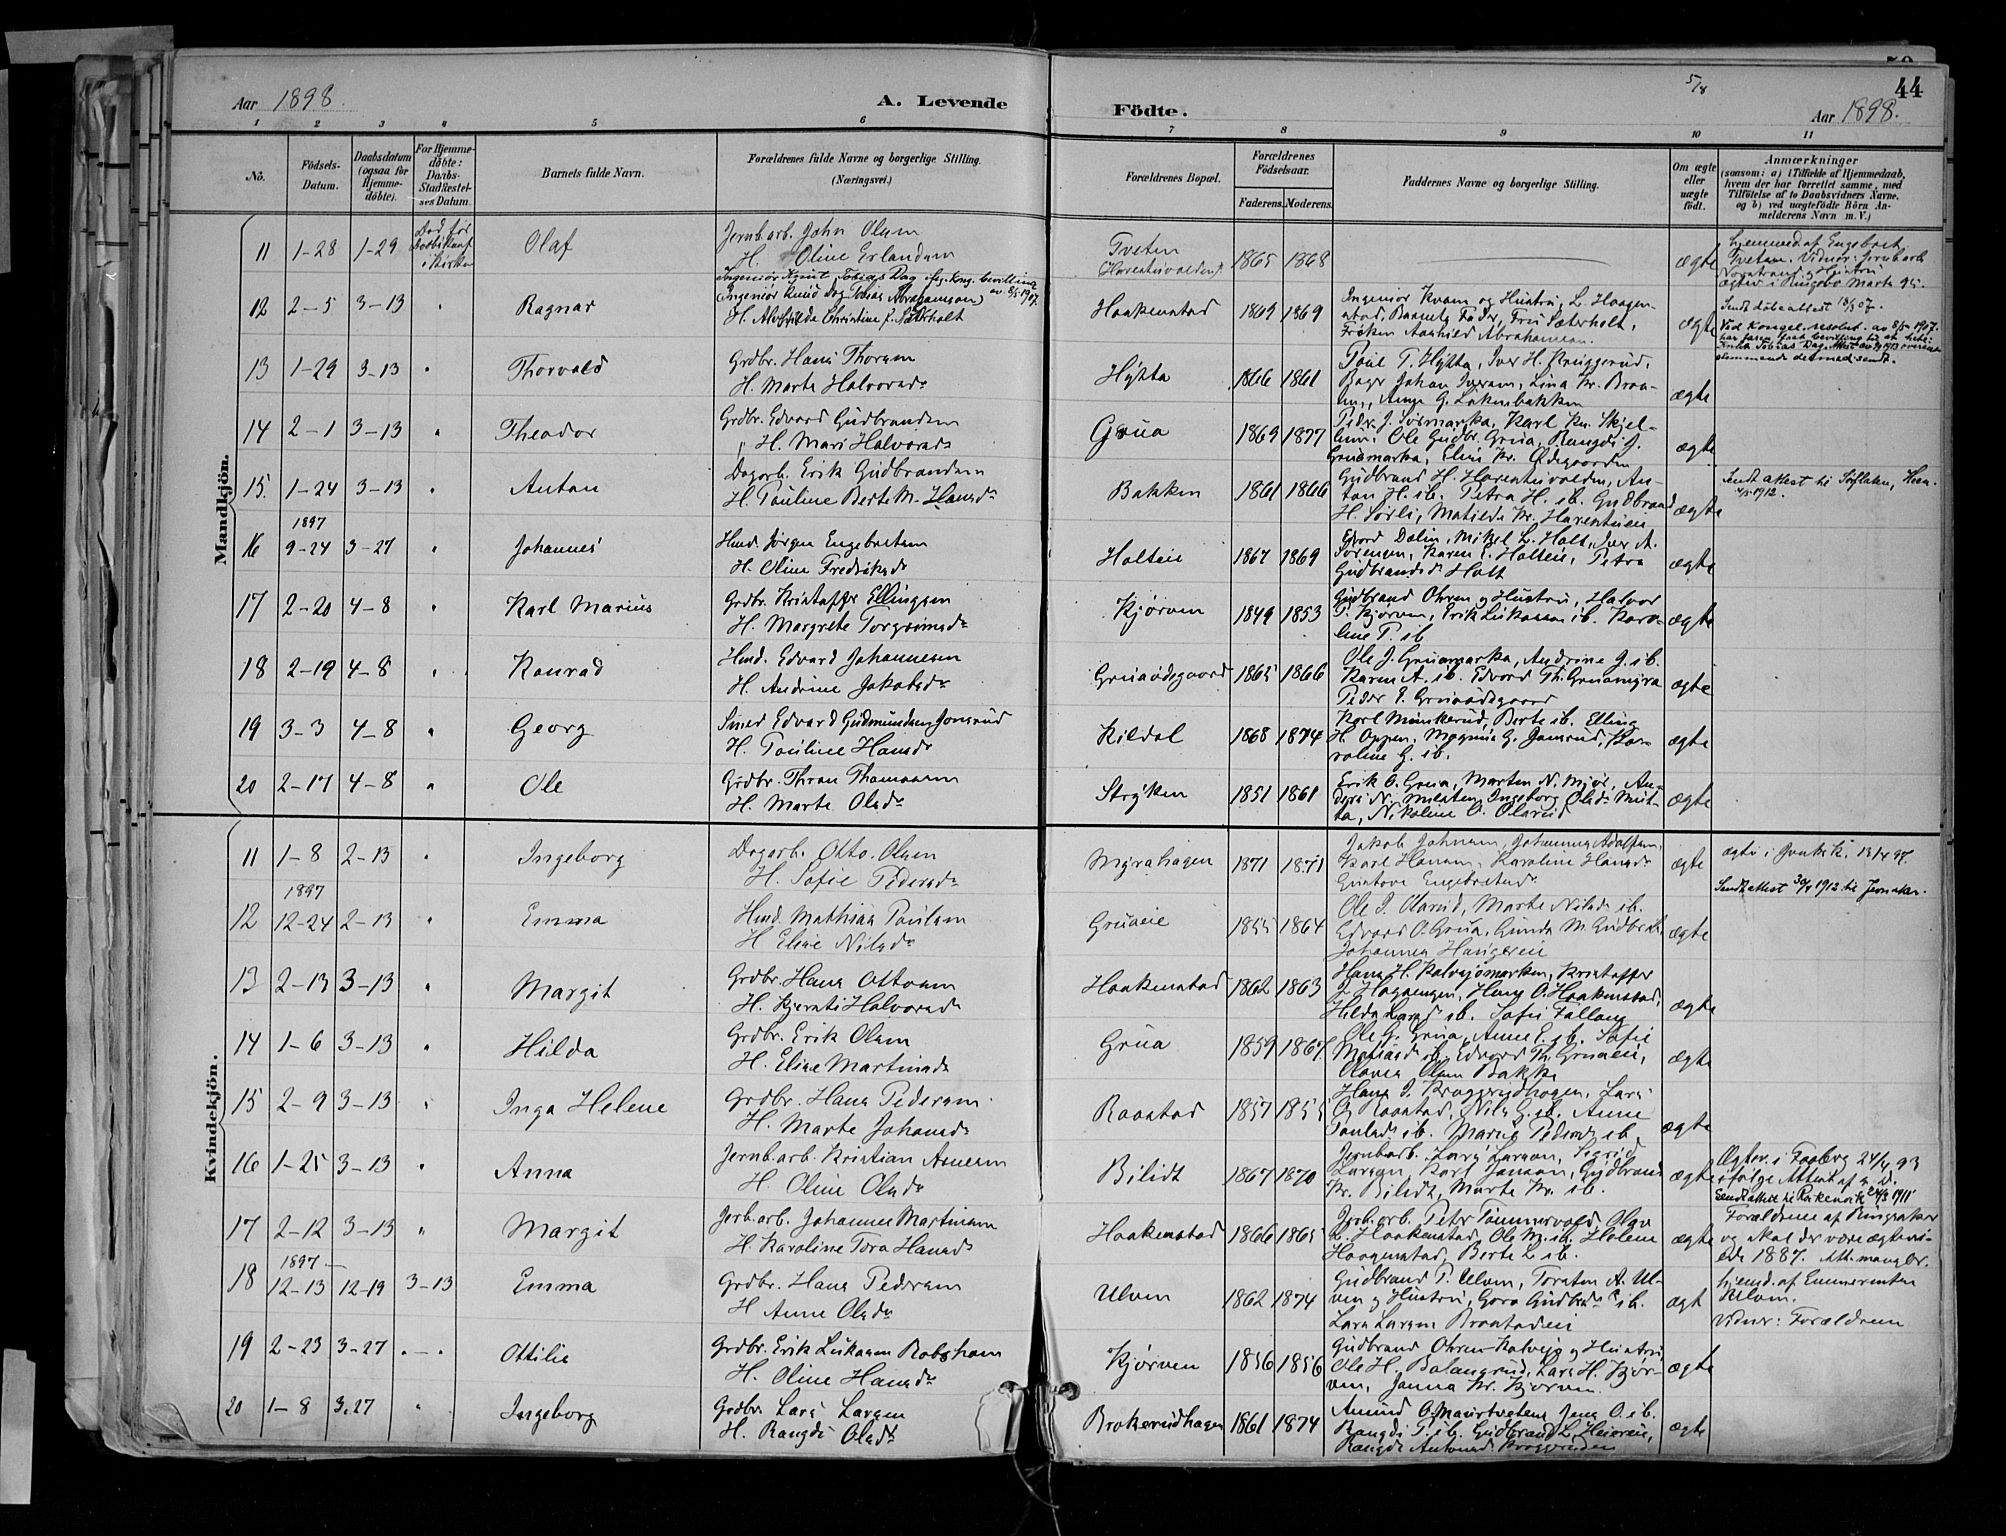 44
5/8
Aar 1898.
A. Levende Födte.
Aar 1898.
1 2 3 4 5 6 7 8 9 10 11
No.
Födsels-Datum.
Daabsdatum (ogsaa for Hjemme-döbte).
For Hjemme-döbte: Daabs-Stadfæstel-ses Datum.
Barnets fulde Navn.
Forældrenes fulde Navne og borgerlige Stilling.
(Næringsvei.)
Forældrenes Bopæl.
Forældrenes Födselsaar.
Faderens. Moderens.
Faddernes Navne og borgerlige Stilling.
Om ægte eller uægte födt.
Anmærkninger
(saasom: a) i Tilfælde af Hjemmedaab,
hvem der har forrettet samme, med
Tilföielse af to Daabsvidners Navne,
og b) ved uægtefödte Börn An-
melderens Navn m. V.)
Mandkjön.
11 1-28 1-29 Död før i Kirken Olaf
Jernb.arb. John Olsen
H. Oline Erlandsen
Tveten 1865 1868 ægte
hjemmed. af Engebret Tveten. Vidner: Jernbarb.
12 2-5 3-13 " Ragnar
Ingeniør Knut Tobias Dag ifg. kong. bevilling av 8/5 1907.
(Ingeniør Knud Dag Tobias Abrahamsen)
H. Christine f. Sætherholt
Haakenstad 1869 1869
Ingeniør Kvam og Hustru, L. Haagen-
stad, Barnets Fader, Fru Sæterholt,
Frøken Aashild Abrahamsen.
ægte
Sendt døbeattest 13/5 07.
Ved Kongel. resolut. av 8/5 1907.
13 1-29 3-13 " Thorvald
Grdbr. Hans Thorsen
H. Marte Halvorsdr
Hytta 1866 1861
Paul T. Hytta, Iver H. Kruggerud,
Bager Johan Iversen, Lina Kr. Braa-
ten, Anne G. Lokenbakken
ægte
14 2-1 3-13 " Theodor
Grdbr. Edvard Gudbrandsen
H. Mari Halvorsdr
Grua 1869 1877
Peder J. Sørsmarka, Karl Kr. Skjel-
Ole Gudbr. Grua, Rangdi J.
Gruamarka, Eline Kr. Ødegaarden
ægte
15. 1-24 3-13 " Anton
Dagarb. Erik Gudbrandsen
H. Pauline Berte M. Hansdr
Bakken 1861 1866
Gudbrand H. Harestuvolden, An-
ton H. ib. Petra H. ib. Gudbrand
H. Sørli, Matilde Kr. Harestuen
ægte
Sendt attest til 1912.
16 1897 9-24 3-27 " Johannes
Hmd. Jørgen Engebretsen
H. Oline Fredriksdr
Holteie 1867 1869
Edvard Dalen, Mikel L. Holt, Iver A.
Sørensen, Karen E. Holteie, Petra
Gudbrandsdr Holt
ægte
17 2-20 4-8 " Karl Marius
Grdbr. Kristoffer Ellingsen
H. Margrete Torgrimsdr
Kjørven 1849 1853
Gudbrand Ohren og Hustru, Halvor
T. Kjørven, Erik Lukassen ib. Karo-
line T. ib
ægte
18 2-19 4-8 " Konrad
Hmd. Edvard Johannesen
H. Andrine Jakobsdr
Gruaødegaard 1865 1866
Ole J. Gruamarka, Andrine J. ib.
Karen A. ib. Edvard Th. Gruamyra
Peder E. Gruaødegaard
ægte
19 3-3 4-8 " Georg
Smed Edvard Gudmundsen Jonsrud
H. Pauline Hansdr
Kildal 1868 1874
Karl Munkerud, Berte ib. Elling
H. Oppen, Magnus G. Jonsrud, Ka-
roline G. ib.
ægte
20 2-17 4-8 " Ole
Grdbr. Thron Thomassen
H. Marte Olsdr
Stryken 1851 1861
Erik O. Grua, Marten N. Mjør, An-
ders N. Ingeborg Olsdr
Nikoline O. Olerud
ægte
Kvindekjön.
11 1-8 2-13 " Ingeborg
Dagarb. Otto Olsen
H. Sofie Pedersdr
Myrahagen 1871 1871
Jakob Johnsen, Johannes Adolfsen,
Karl Hansen, Karoline Hansdr
Gustava Engebretsdr
ægte
Sendt attest 30/4 1912 til Jevnaker.
12 1897 12-24 2-13 " Emma
Hmd. Mathias Paulsen
H. Eline Nilsdr
Gruaeie 1855 1864
Ole J. Olerud, Marte Nilsdr ib.
Edvard O. Grua, Gunda M. Gudbrdr,
Johannes Haugereie
ægte
13 2-13 3-13 " Margit
Grdbr. Hans Ottosen
H. Kjersti Halvorsdr
Haakenstad 1862 1863
Hans H. Kalvsjømarken, Kristoffer
J. Hagaengen, Hans O. Haakenstad,
Hilda Larsdr ib. Sofie Fallang
ægte
14 1-6 3-13 " Hilda
Grdbr. Erik Olsen
H. Eline Martinsdr
Grua 1859 1867
Ole G. Grua, Anne E. ib. Sofie
Matiasdr ib. Edvard Th. Gruaeie,
Olaves Olsen Bakke
ægte
15 2-9 3-13 " Inga Helene
Grdbr. Hans Pedersen
H. Marte Johansdr
Raastad 1857 1855
Hans J. Kroggerudhagen, Lars
O. Raastad, Nils G. ib. Anne
Paulsdr ib. Marie Pedersdr ib.
ægte
16 1-25 3-13 " Anna
Jernb.arb. Kristian Arnesen
H. Oline Olsdr
Bilidt 1867 1870
Jernbarb. Lars Larsen, Sigrid
Larsen, Karl Jansen, Gudbrand
Kr. Bilidt, Marte Kr. ib.
ægte
Ægtev. i Faaberg 24/4 93
ifølge Attest af s. D.
Sendt attest til 1911
17 2-12 3-13 " Margit
Jerb.arb. Johannes Martinsen
H. Karoline Tora Hansdr
Haakenstad 1866 1865
Jerb.arb. Peter Sommervold, Olav
L. Haakenstad, Ole M. ib. Helene
Haagenstad, Berte L. ib.
ægte
Forældrene af Ringsaker
og skal der være ægtevi-
ede 1887. Att. mangler.
18 1897 12-13 12-19 3-13 Emma
Grdbr. Hans Pedersen
H. Anne Olsdr
Ulven 1862 1874
Gudbrand P. Ulven, Torsten A. Ul-
ven og Hustru, Goro Gudbrdr ib.
Lars Larsen Braastadeie
ægt
hjemd. af
Ulven.
Vidner: Forældrene
19 2-23 3-27 " Ottilie
Grdbr. Erik Lukasen Robsham
H. Oline Hansdr
Kjørven 1856 1856
Gudbrand Ohren Kalvsjø og Hustru,
Ole H. Balangrud, Lars H. Kjør-
ven, Janna Kr. Kjørven.
ægte
20 1-8 3.27 " Ingeborg
Grdbr Lars Larsen
H. Rangdi Olsdr
Brokerudhagen 1861 1874
Amund O. Jens O. ib.
Rangdi P. ib. Gudbrand L. Heiereie,
Rangdi Antonsdr
ægte